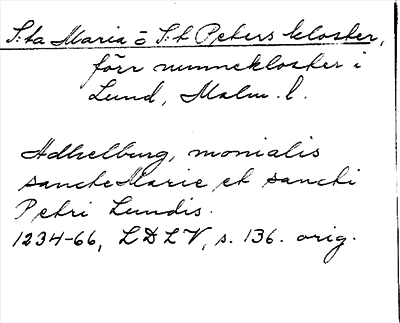 S:ta Maria o S:t Peters kloster,
förr nunnekloster i
Lund, Malm. l.
Adhelburg, monialis
sancte Marie et sancti
Petri Lundis.
1234-66, LDLV, s. 136. orig.